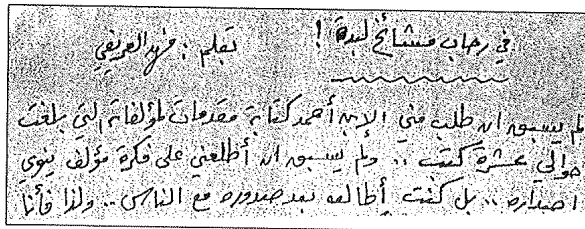 في رحاب مشائخ لبدة ! بقلم : فهد العريفي
لم يسبق ان طلب مني الإبن أحمد كتابة مقدمات لمؤلفاته التي بلغت
حوالي عشرة كتب .. ولم يسبق ان أطلعني على فكرة مؤلف ينوي
اصداره .. بل كنت أطالعه بعد صدوره مع الناس .. ولذا فأنا